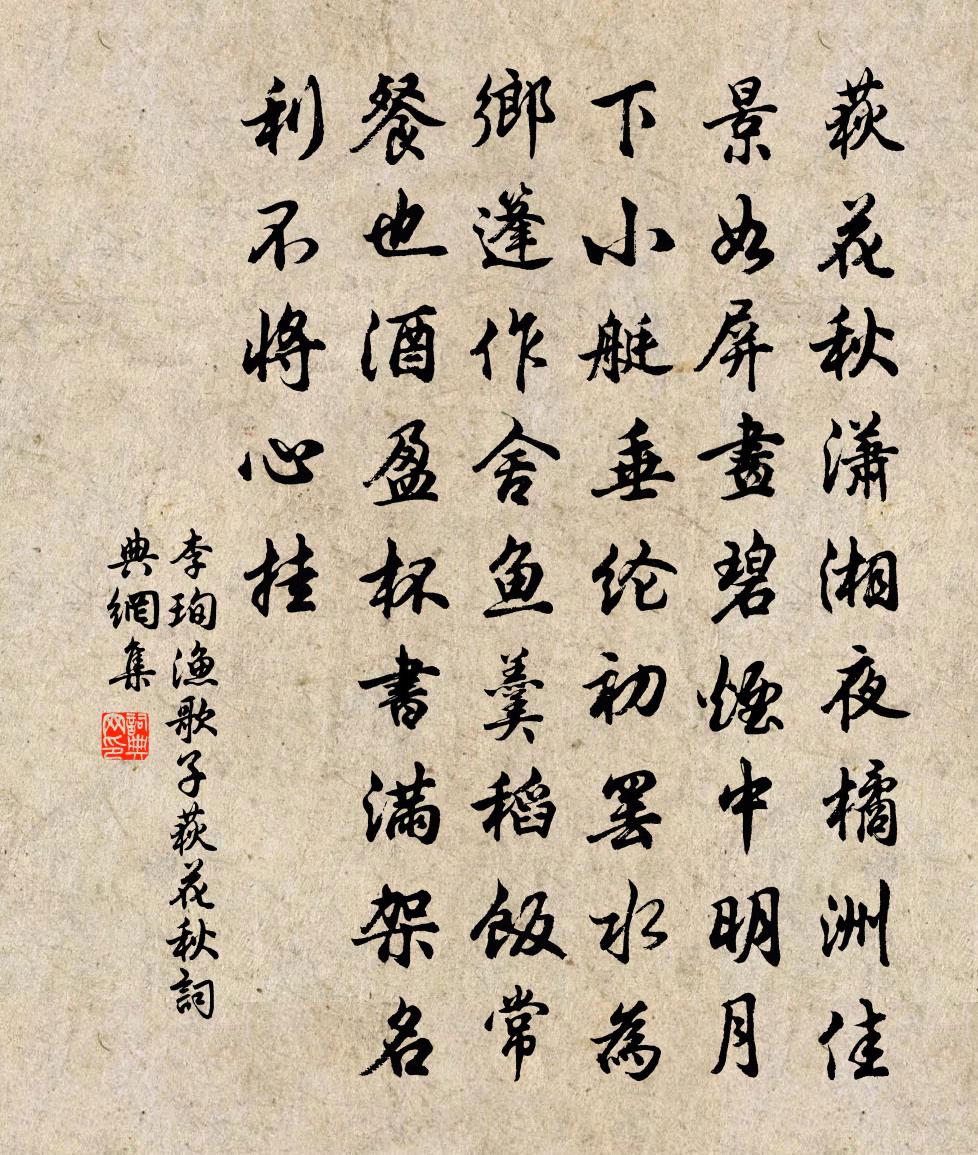 荻花秋瀟湘夜橘洲佳
景如屏畫碧煙中明月
下小艇垂纶初罢水為
鄉篷作舍鱼羹稻飯常
餐也酒盈杯書滿架名
利不將心挂
李珣渔歌子荻花秋詞
典網集
詞典网印